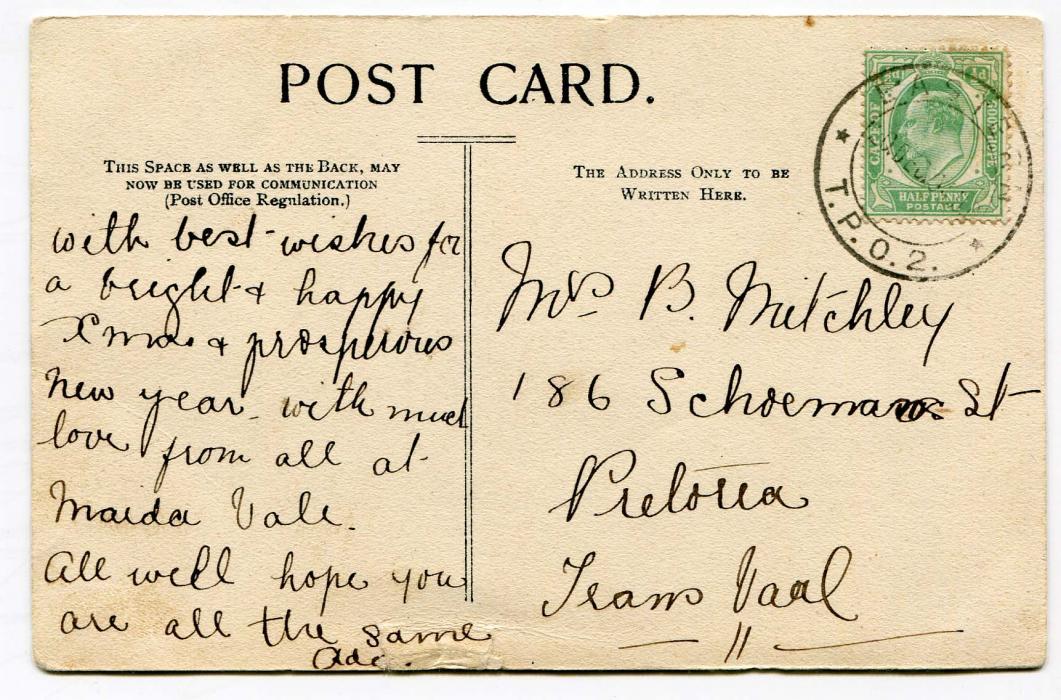 POST CARD.
THIS SPACE AS WELL AS THE BACK, MAY
NOW BE USED FOR COMMUNICATION
(Post Office Regulation.)
with best wishes for
a bright & happy
Xmas & prosperous
New year with much
love from all at
Maida Vale.
All well hope you
are all the same
Ada.
THE ADDRESS ONLY TO BE
WRITTEN HERE.
Mrs B. Mitchley
186 Schoeman St
Pretoria
Trans Vaal
CAPE OF GOOD HOPE
HALFPENNY
POSTAGE
T.P.O.2.